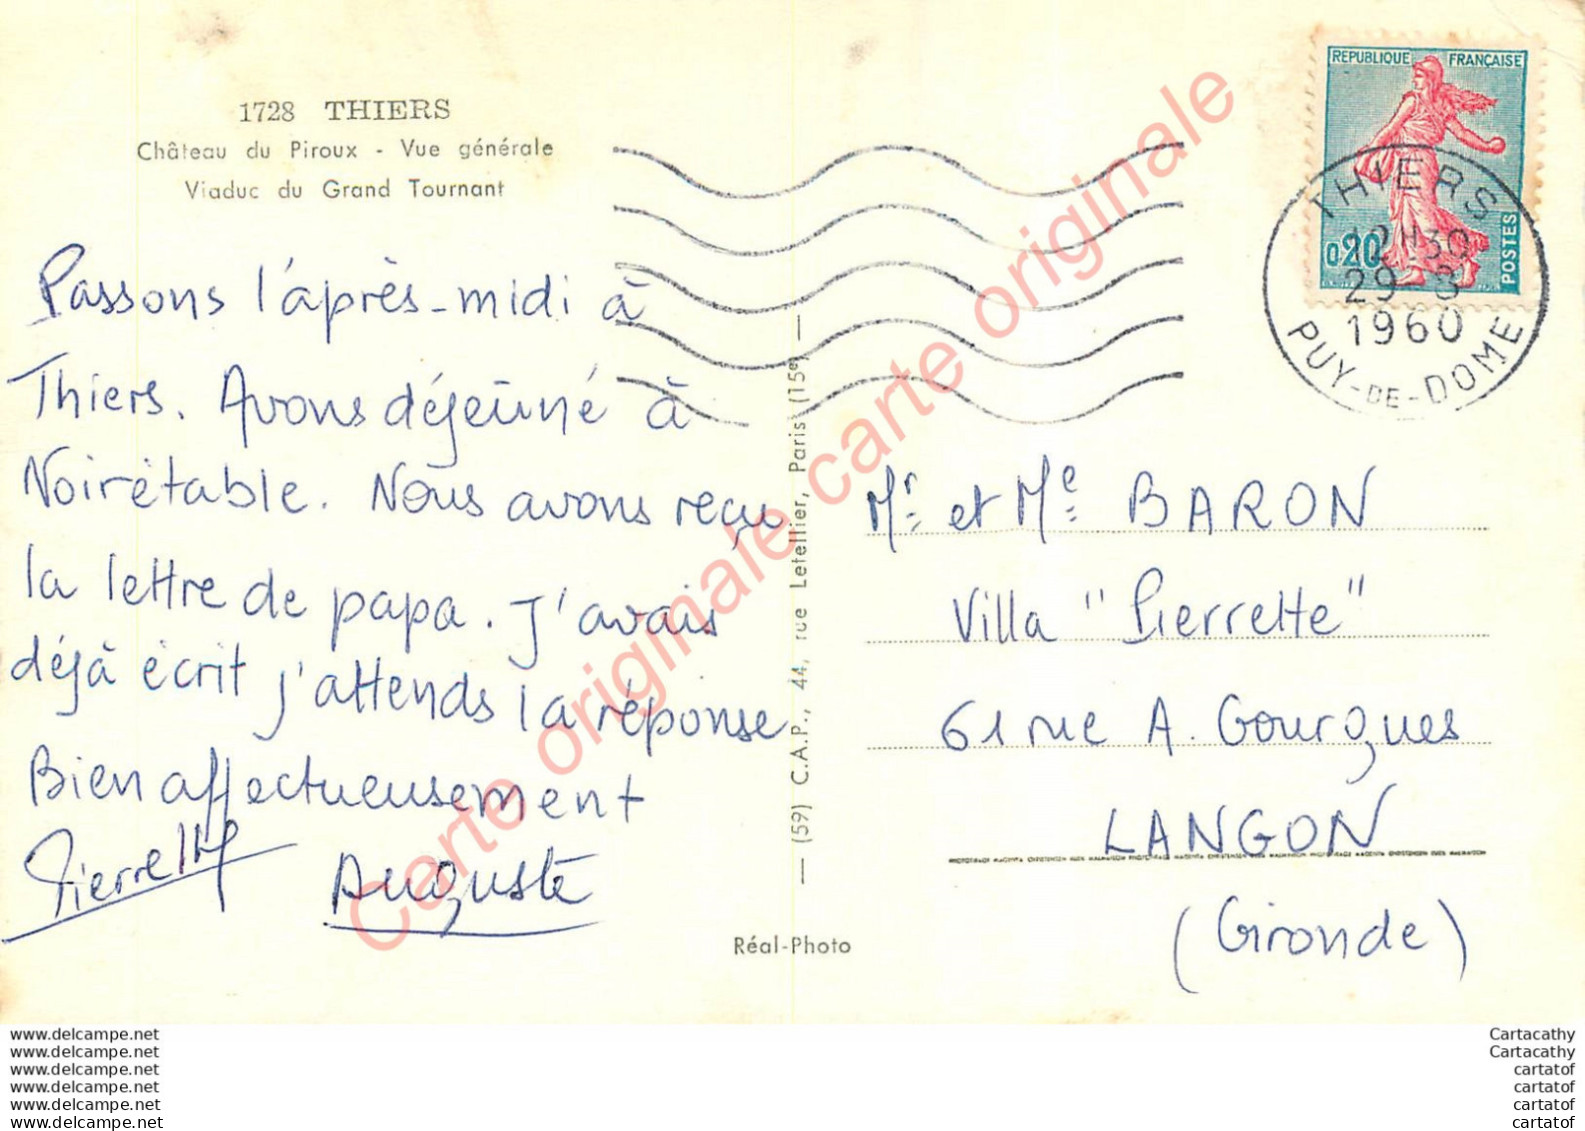 1728 THIERS
Château du Piroux - Vue générale
Viaduc du Grand Tournant
Passons l'après-midi à
Thiers. Avons déjeûné à
Noirétable. Nous avons reçu
la lettre de papa. J'avais
déjà écrit j'attends la réponse
Bien affectueusement
Pierrette
Auguste
(59) C.A.P., 44, rue Letellier, Paris (15e)
Réal-Photo
REPUBLIQUE FRANÇAISE
0,20
POSTES
THIERS
12H30
29-8
1960
PUY-DE-DOME
Mr et Me BARON
Villa "Pierrette"
61 rue A. Gourgues
LANGON
(Gironde)
Carte originale carte originale
www.delcampe.net
www.delcampe.net
www.delcampe.net
www.delcampe.net
www.delcampe.net
www.delcampe.net
Cartacathy
Cartacathy
cartatof
cartatof
cartatof
cartatof